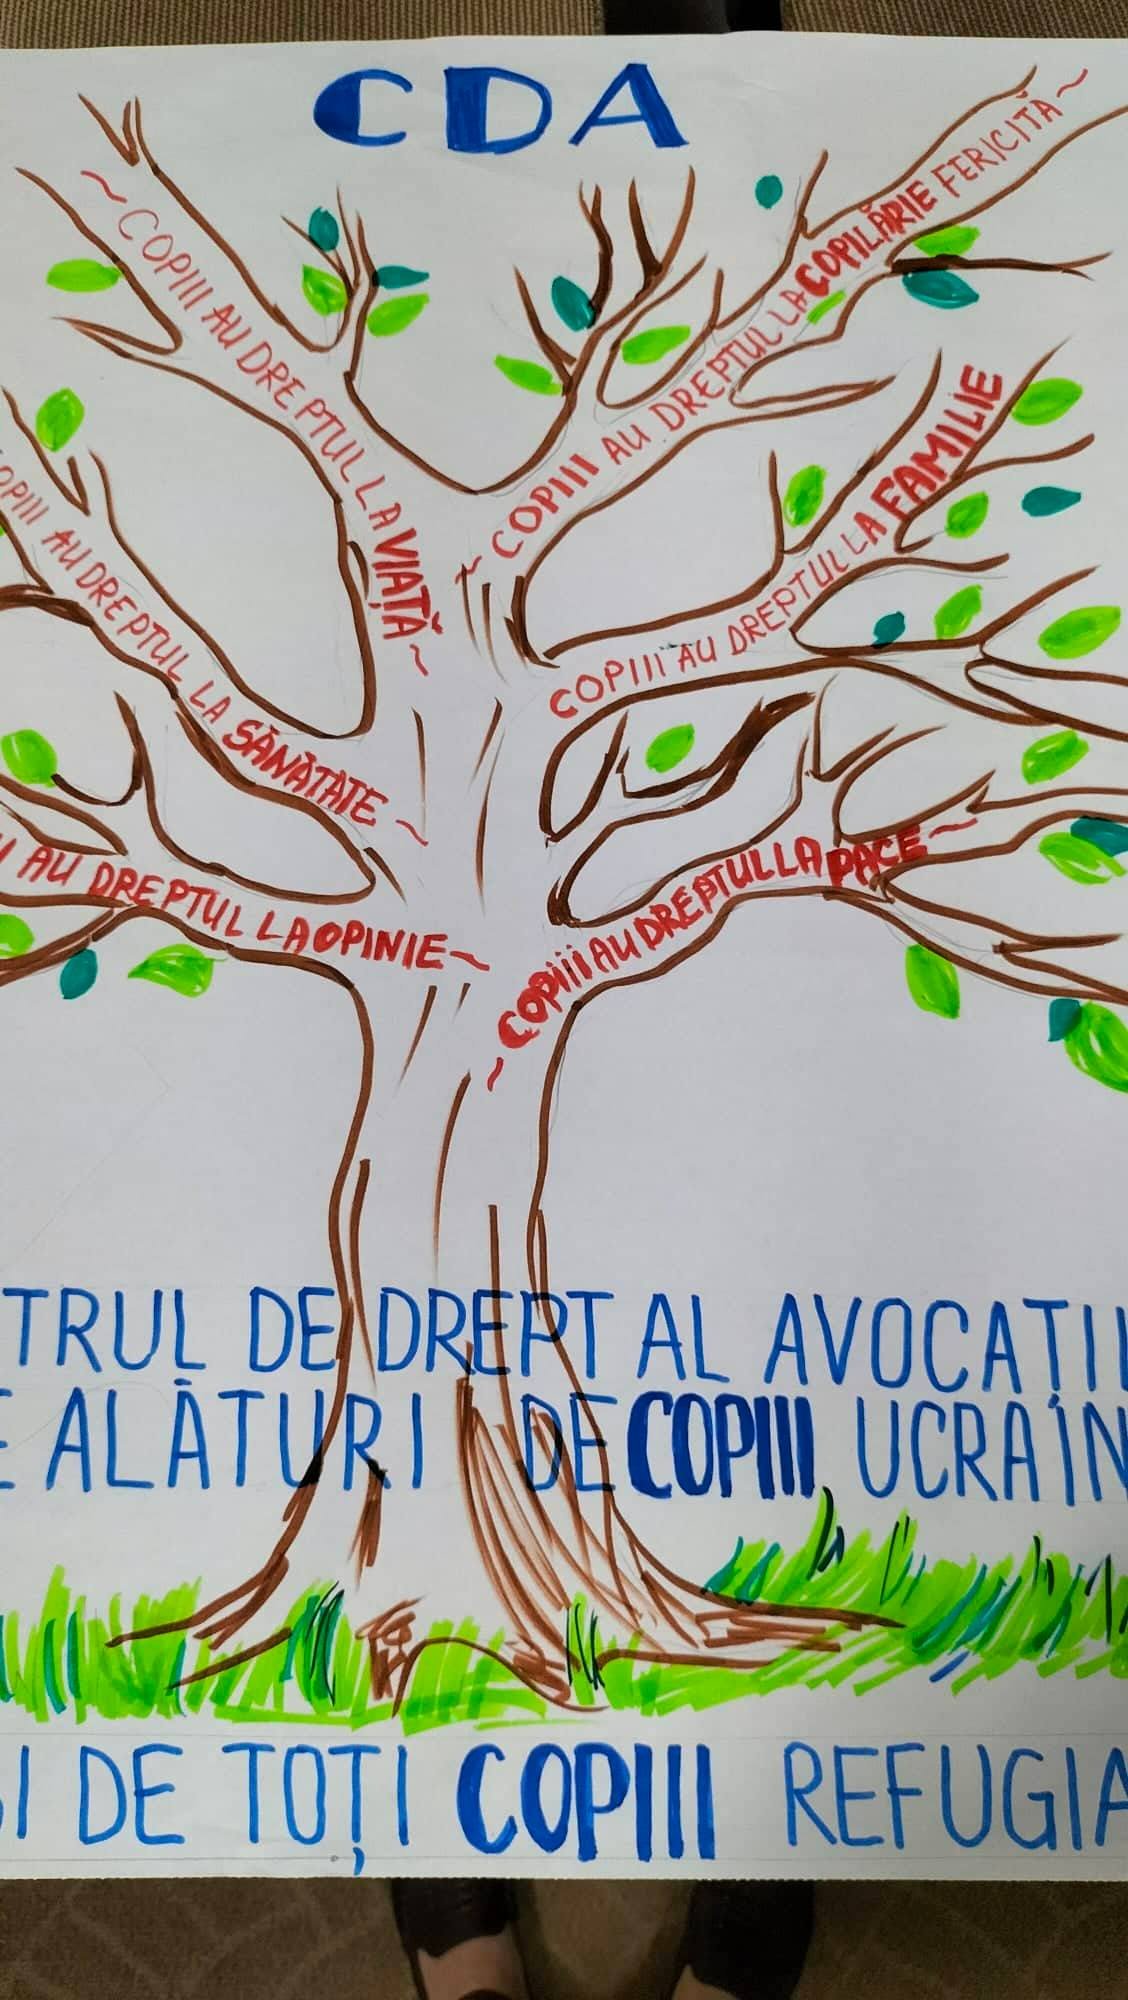 CDA
~ COPIII AU DREPTUL LA VIAȚĂ ~
~ COPIII AU DREPTUL LA COPILĂRIE FERICITĂ ~
OPIII AU DREPTUL LA SĂNĂTATE ~
COPIII AU DREPTUL LA FAMILIE
AU DREPTUL LA OPINIE ~
~ COPIII AU DREPTUL LA PACE ~
TRUL DE DREPT AL AVOCAȚIL
E ALĂTURI DE COPIII UCRAIN
ȘI DE TOȚI COPIII REFUGIA